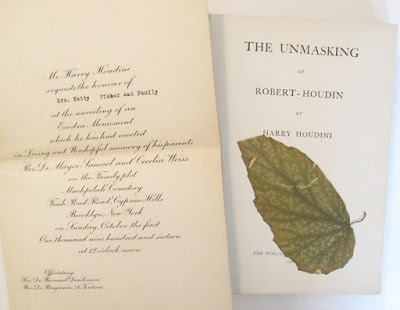 Mr. Harry Houdini
requests the honour of
Mrs. Hatty Fisher and Family
at the unveiling of an
Exedra Monument
which he has had erected
in Loving and Worshipful memory of his parents
Rev. Dr. Mayer Samuel and Cecelia Weiss
on the Family plot
Machpelah Cemetery
Fresh Pond Road, Cypress Hills
Brooklyn, New York
on Sunday, October the first
One thousand nine hundred and sixteen
at 12 o'clock noon
Officiating
Rev. Dr. Bernard Drachman
Rev. Dr. Benjamin A.
THE UNMASKING
OF
ROBERT-HOUDIN
BY
HARRY HOUDINI
THE